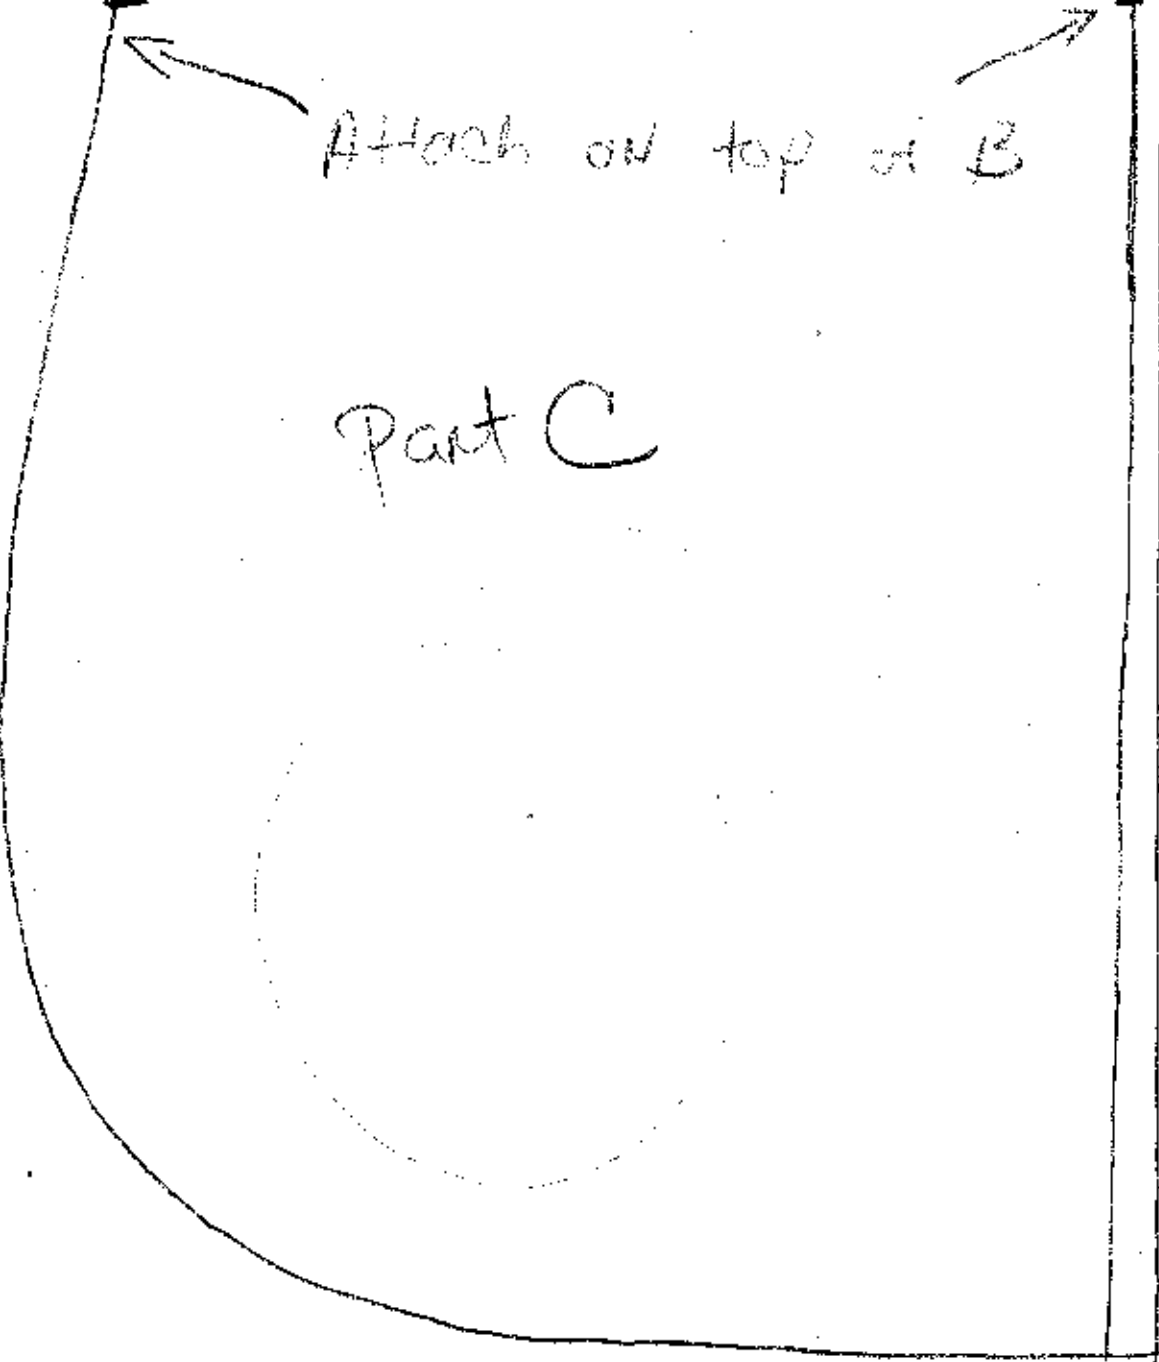 Attach on top of B
Part C